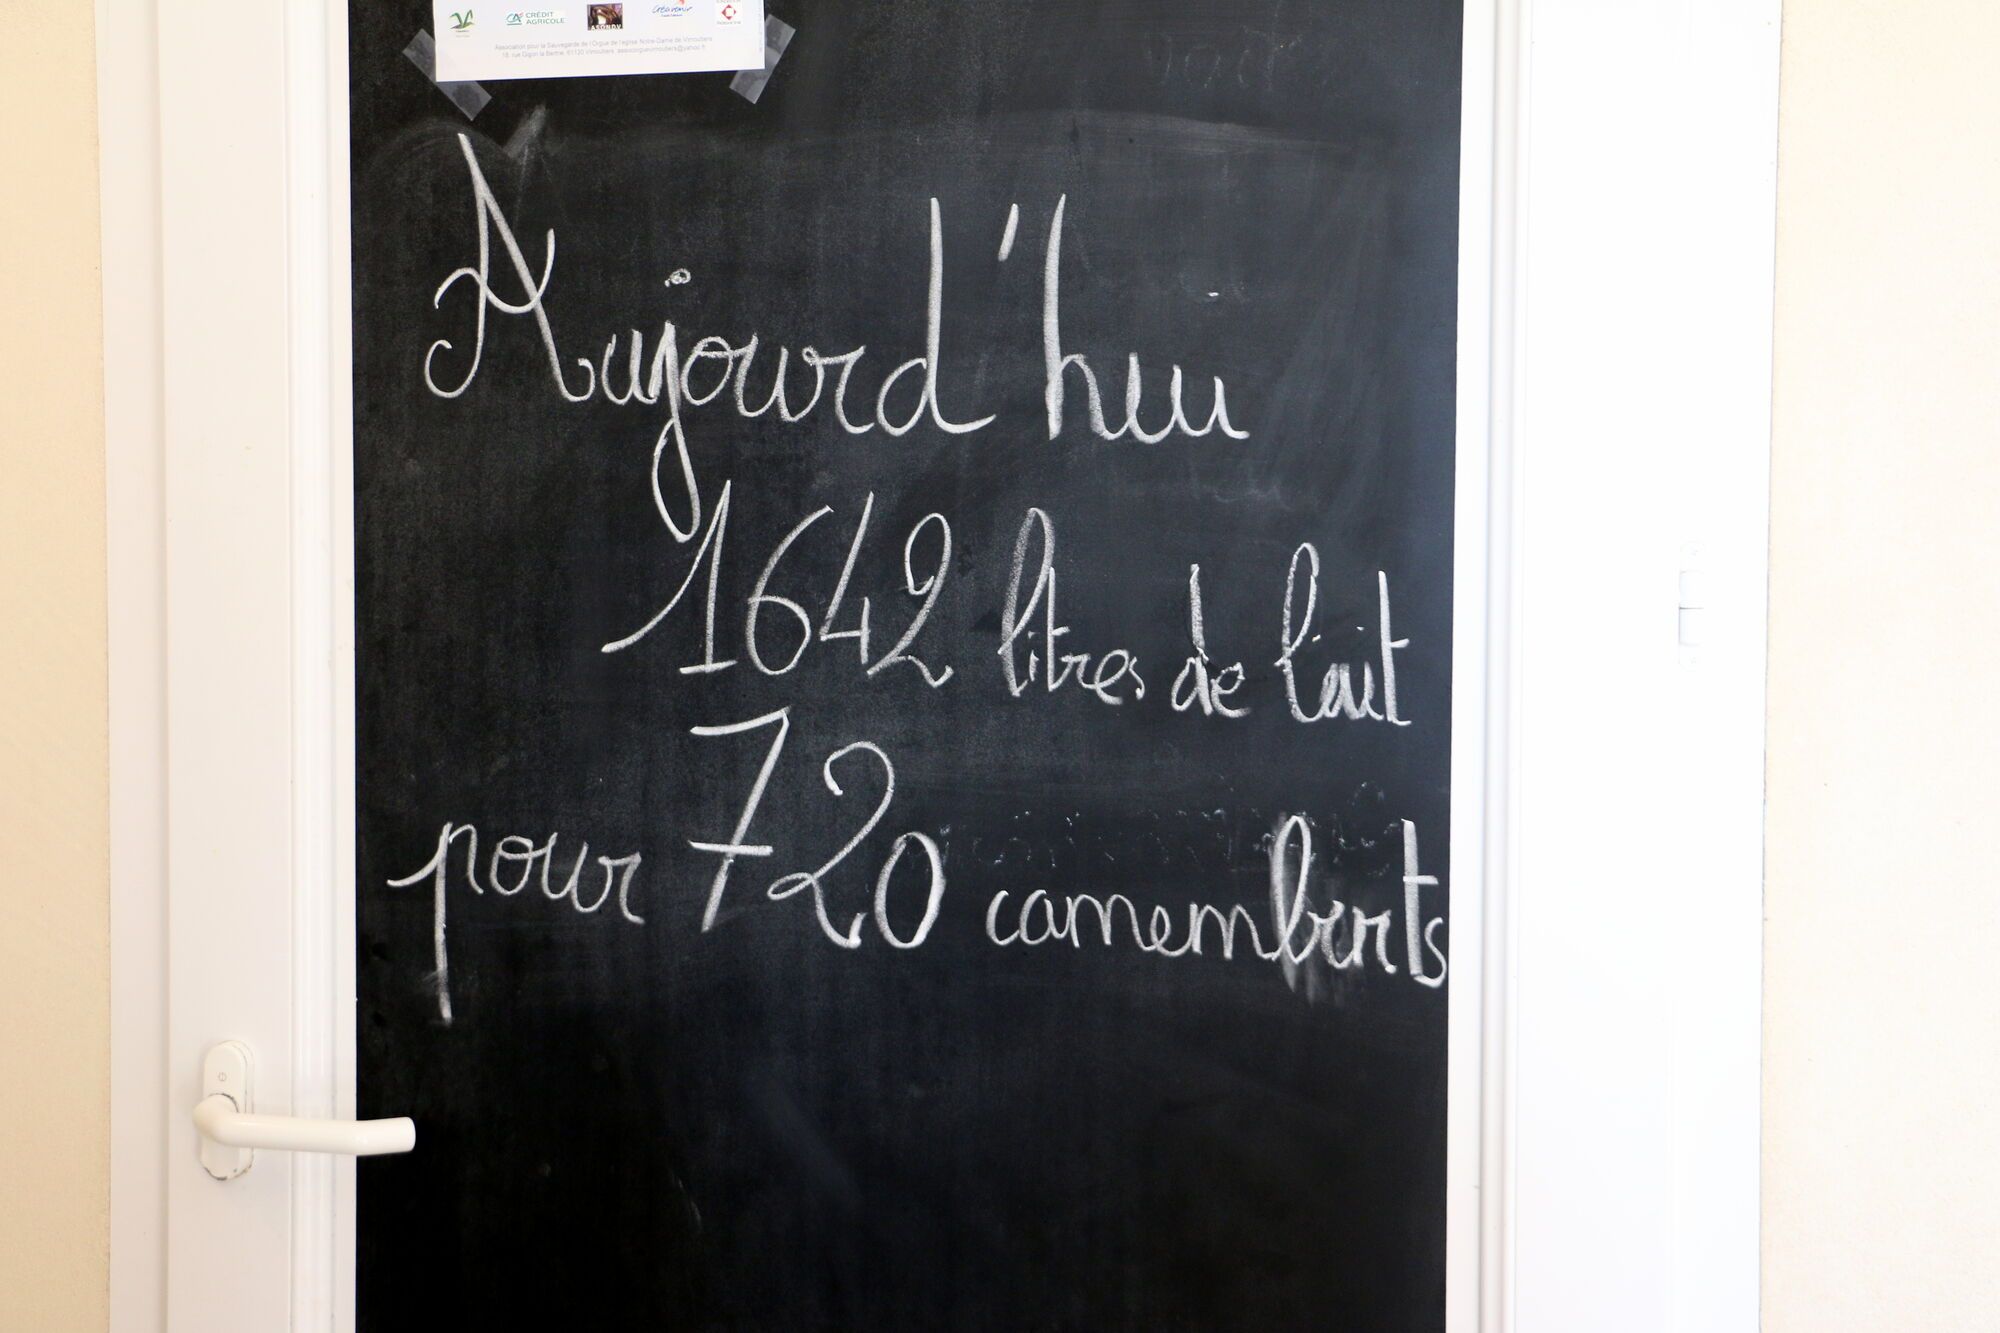 CRÉDIT
AGRICOLE
ASONDV
Créavenir
Association pour la Sauvegarde de l'Orgue de l'église Notre-Dame de Vimoutiers
18, rue Gigon la Bertrie, 61120 Vimoutiers
Aujourd'hui
1642 litres de lait
pour 720 camemberts